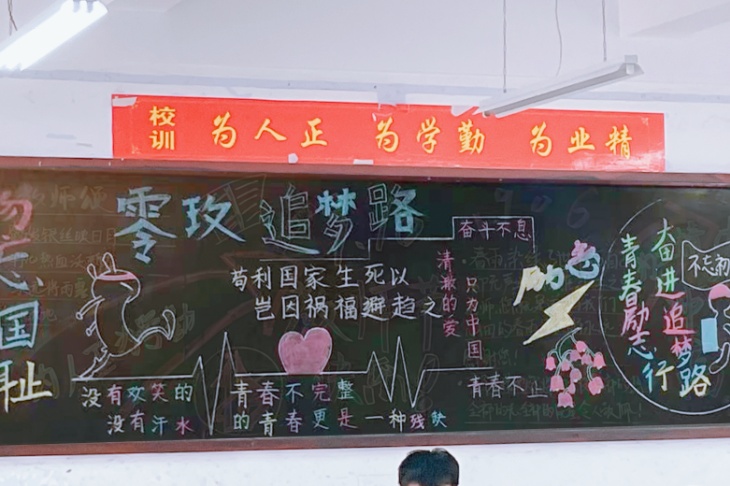 校训 为人正 为学勤 为业精
勿忘国耻
零玫追梦路
苟利国家生死以
岂因祸福避趋之
奋斗不息
清澈的爱
只为中国
青春不止
没有欢笑的青春不完整
没有汗水的青春更是一种残缺
奋进追梦路
青春励志行
不忘初